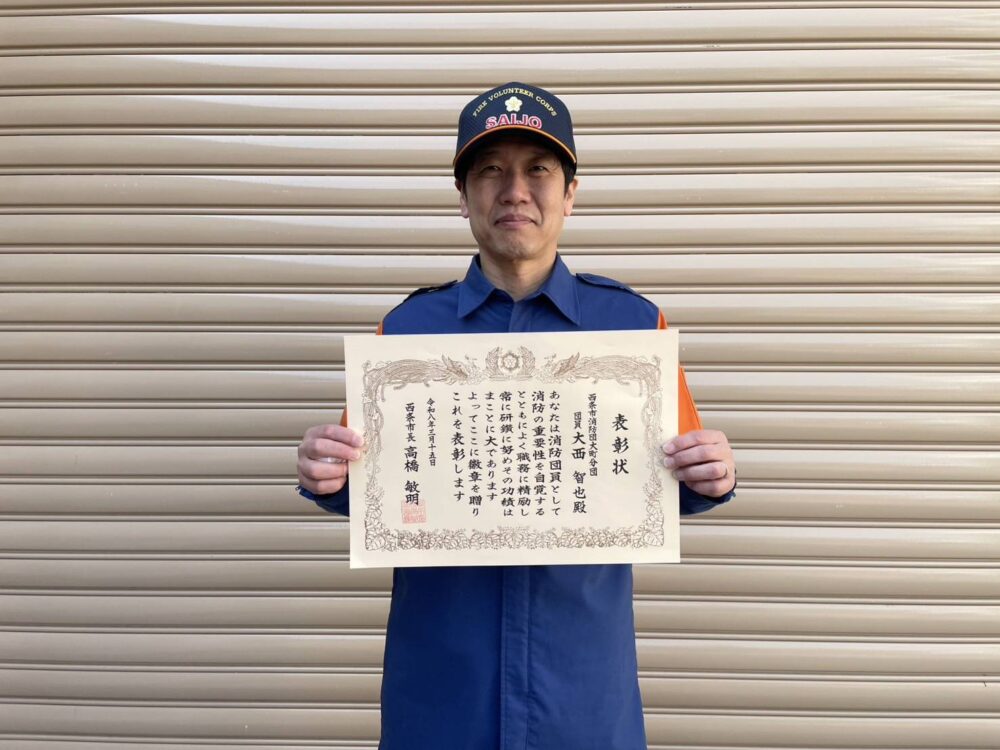 FIRE VOLUNTEER CORPS
SAIJO
表彰状
西条市消防団大町分団
団員 大西 智也殿
あなたは消防団員として
消防の重要性を自覚する
とともによく職務に精励し
常に研鑽に努めその功績は
まことに大であります
よってここに徽章を贈り
これを表彰します
令和八年三月十五日
西条市長 高橋 敏明